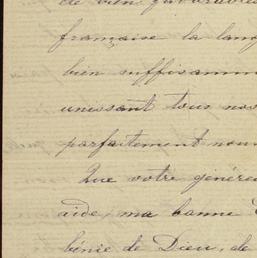 de bien
française la lang
bien suffisamm
unissant tous nos
parfaitement nou
Que votre génére
aide, ma bonne
bénie de Dieu, de